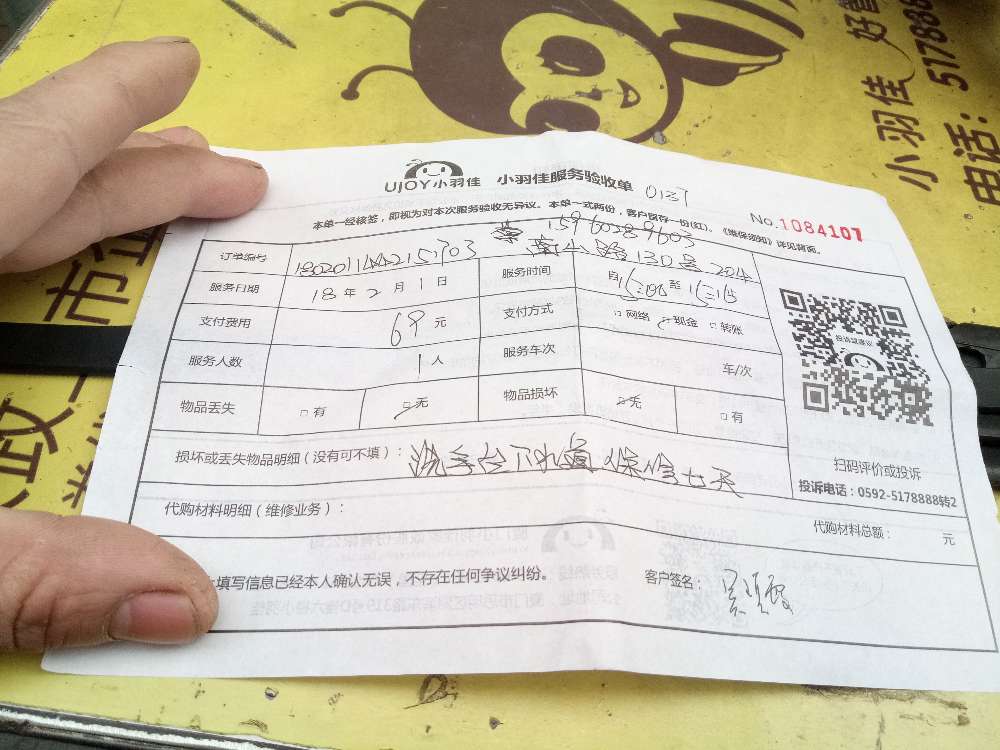 小羽佳 好管
电话：517888
UJOY小羽佳 小羽佳服务验收单 0137
No.1084107
本单一经核签，即视为对本次服务验收无异议。本单一式两份，客户留存一份(红)。《维保须知》详见背面。
15960289603
订单编号 180201144215703 130号 204
服务日期 18年2月1日 服务时间 自16:00至16:15
支付费用 69元 支付方式 □网络 □现金 □转账
服务人数 1人 服务车次 车/次
物品丢失 □有 □无 物品损坏 □无 □有
投诉或建议
扫码评价或投诉
投诉电话：0592-5178888转2
损坏或丢失物品明细（没有可不填）：洗手台下水道 保修七天
代购材料明细（维修业务）： 代购材料总额： 元
填写信息已经本人确认无误，不存在任何争议纠纷。 客户签名：